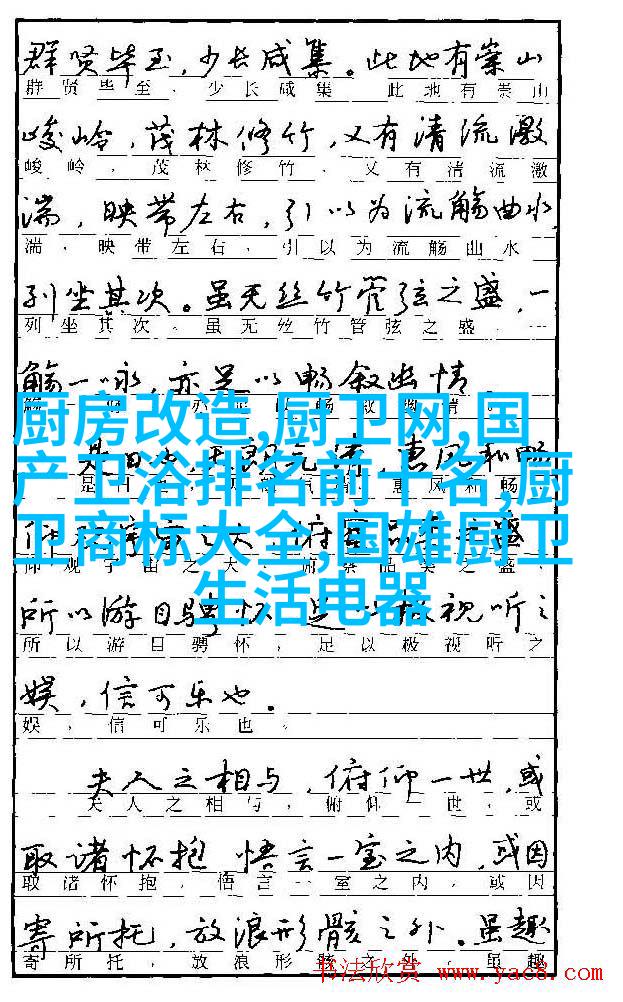 群贤毕至,少长咸集。此地有崇山
群贤毕至,少长咸集。此地有崇山
峻岭,茂林修竹,又有清流激
峻岭,茂林修竹,又有清流激
湍,映带左右,引以为流觞曲水,
湍,映带左右,引以为流觞曲水
列坐其次。虽无丝竹管弦之盛,一
列坐其次。虽无丝竹管弦之盛,一
觞一咏,亦足以畅叙幽情
厨房改造,厨卫网,国
产卫浴排名前十名,厨
卫商标大全,国雄厨卫
生活电器
是日 惠风和畅
所以游目骋怀 足以极视听之
所以游目骋怀,足以极视听之
娱,信可乐也。
娱,信可乐也。
夫人之相与,俯仰一世,或
夫人之相与,俯仰一世,或
取诸怀抱 悟言一室之内,或因
取诸怀抱,悟言一室之内,或因
寄所托,放浪形骸之外。虽趣
寄所托,放浪形骸之外。虽趣
书法欣赏 www.yac8.com